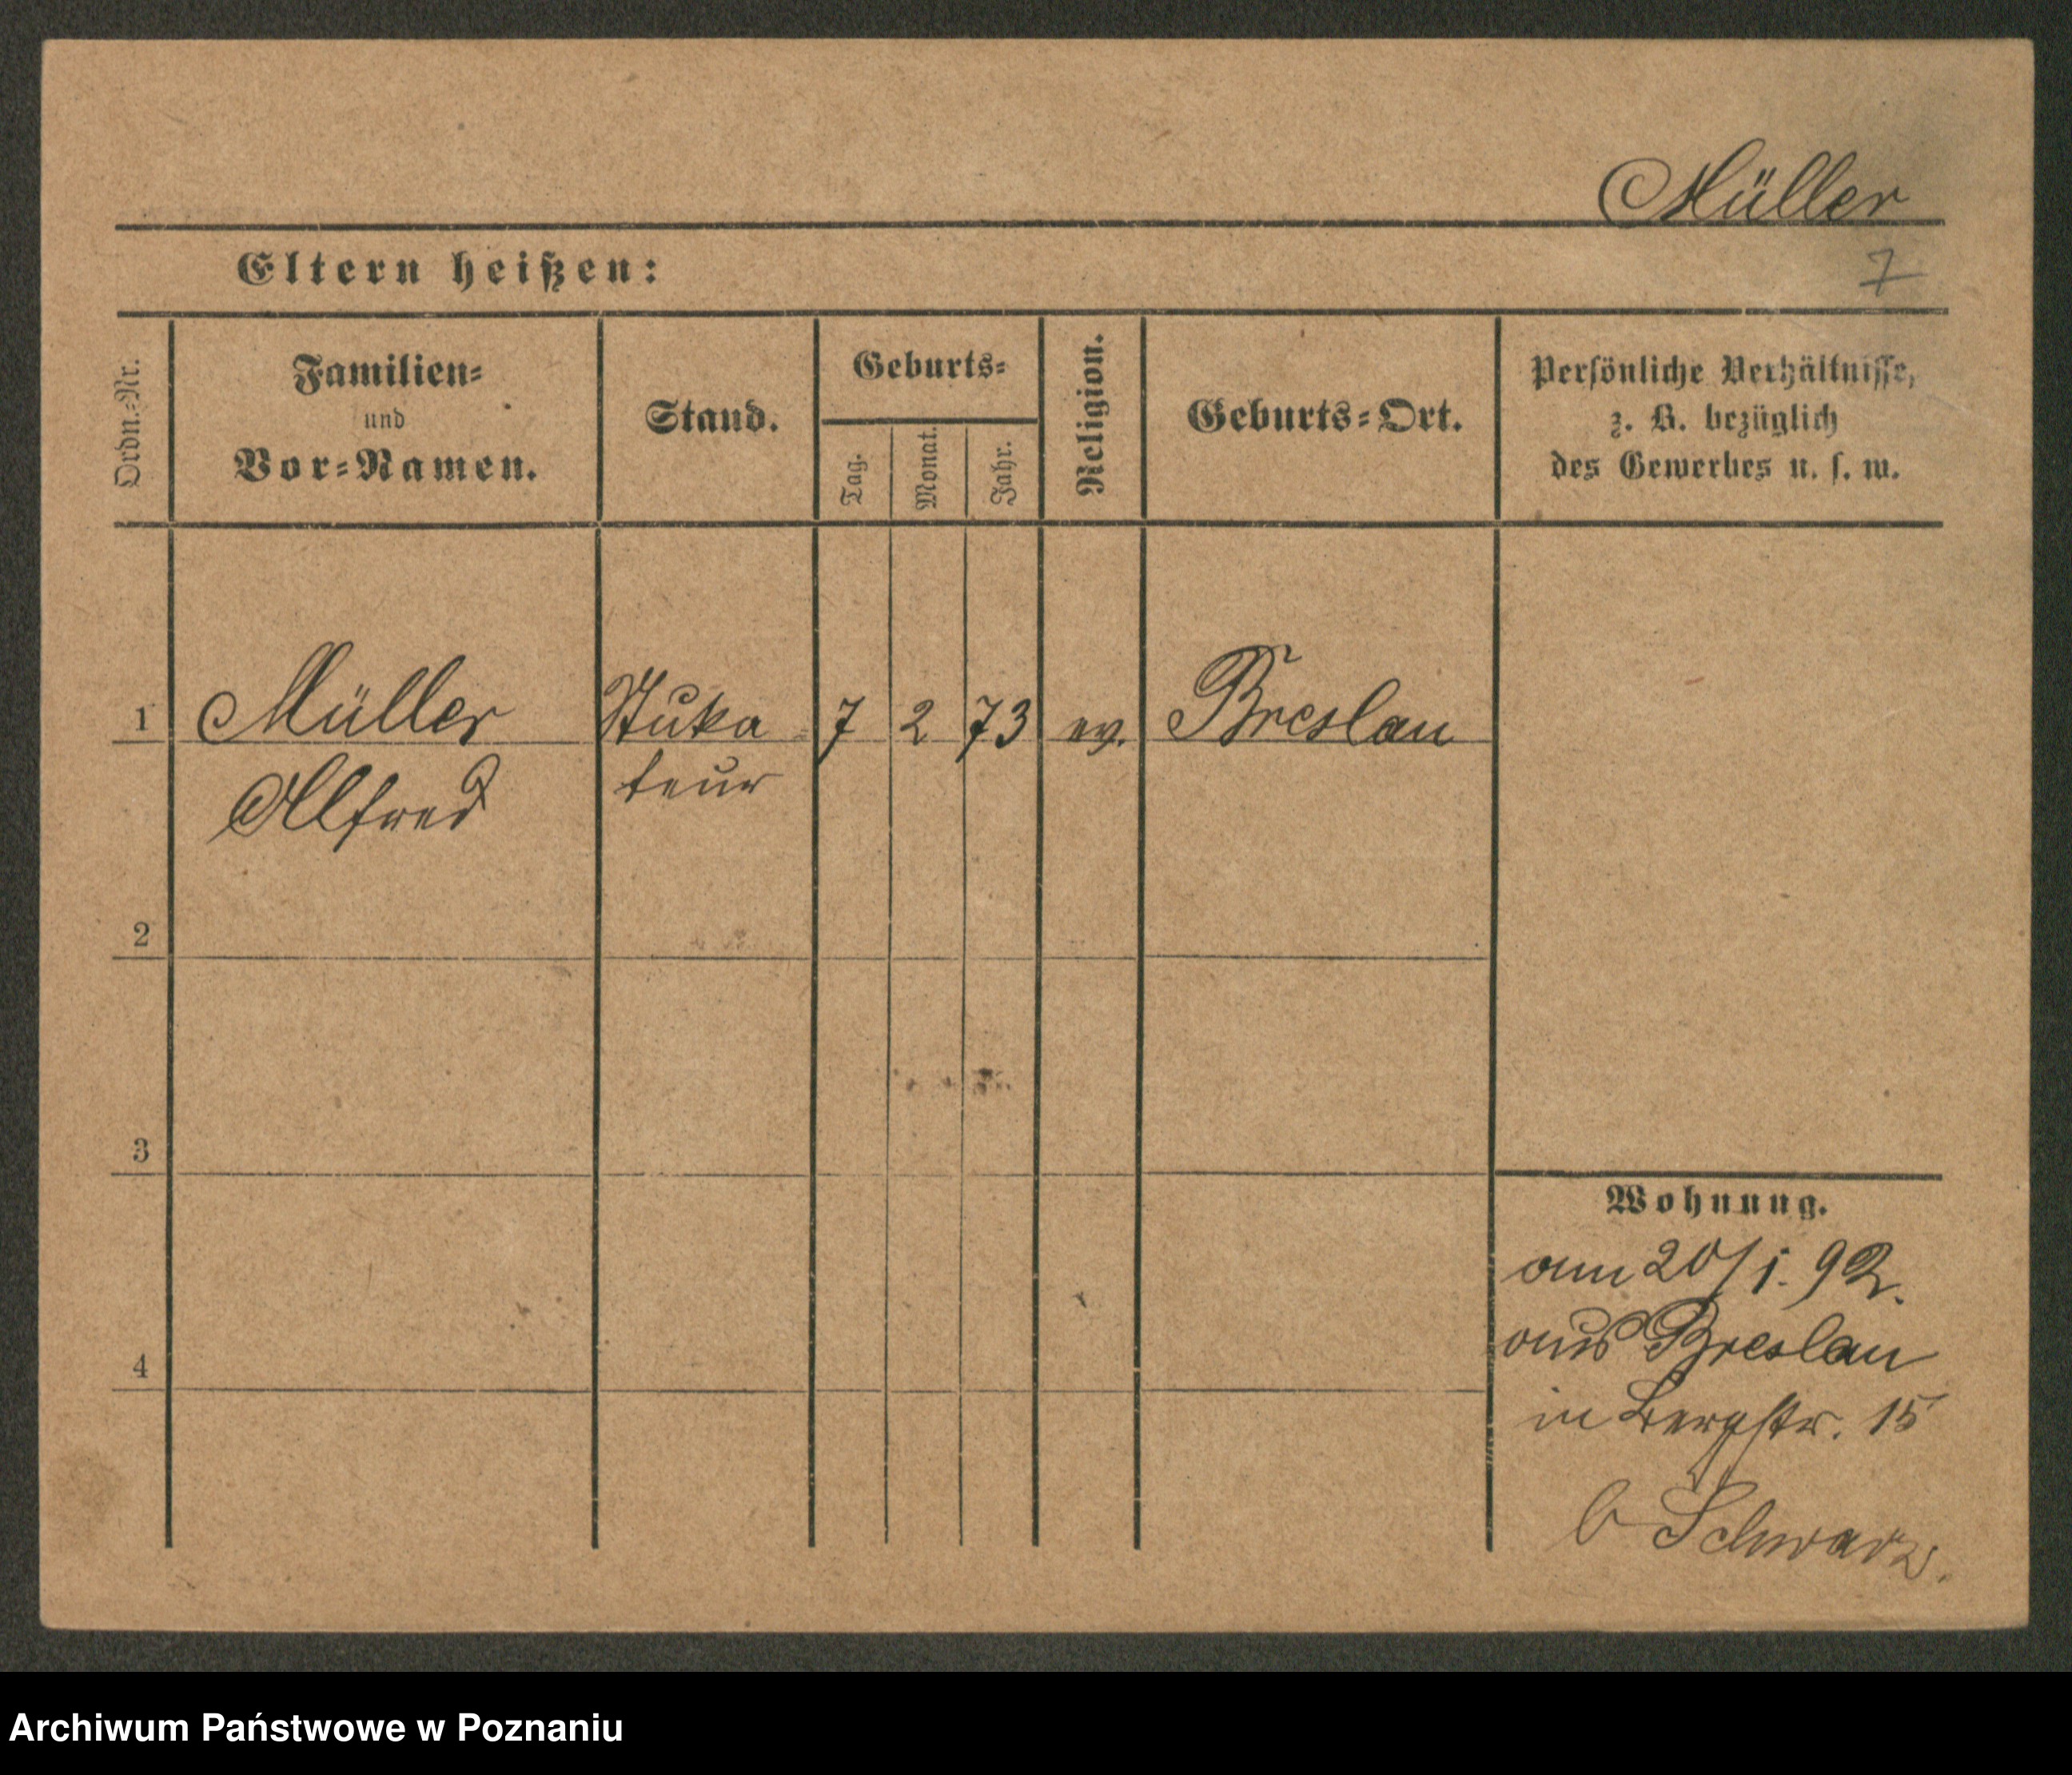 Müller
Eltern heißen:
7
Ordn.-Nr.
Familien-
und
Vor-Namen.
Stand.
Geburts-
Tag.
Monat.
Jahr.
Religion.
Geburts-Ort.
Persönliche Verhältnisse,
z. B. bezüglich
des Gewerbes u. s. w.
1 Müller Stuka- 7 2 73 ev. Breslau
Alfred teur
2
3
4
Wohnung.
am 20/1. 92.
aus Breslau
in Bergstr. 15
b Schwarz.
Archiwum Państwowe w Poznaniu